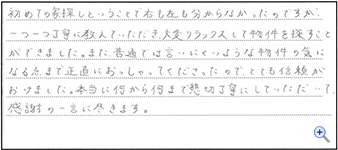 初めての家探しということで右も左も分からなかったのですが、
一つ一つ丁寧に教えていただき、大変リラックスして物件を探すこと
ができました。また、普通では言いにくいような物件の気に
なる点まで正直におっしゃってくださったので、とても信頼が
おけました。本当に何から何まで懇切丁寧にしていただいて、
感謝の一言に尽きます。